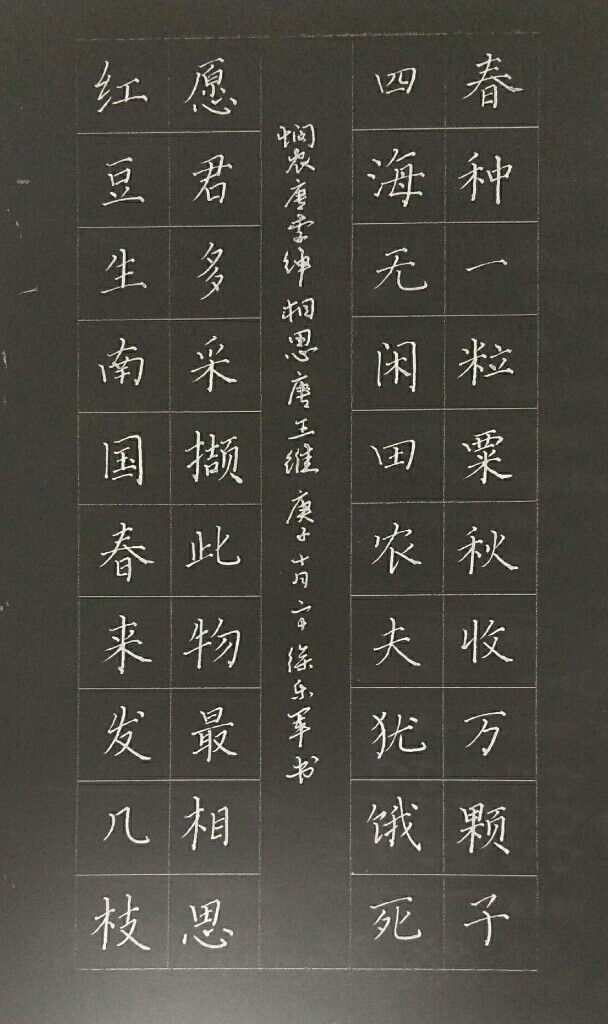 春种一粒粟秋收万颗子
四海无闲田农夫犹饿死
悯农唐李绅 相思唐王维 庚子十月 徐乐军书
愿君多采撷此物最相思
红豆生南国春来发几枝